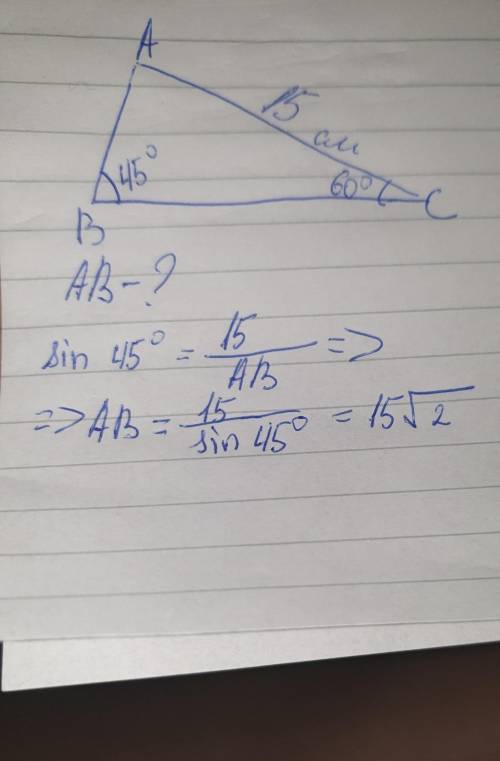 A
15
см
45°
60°
B
C
AB - ?
sin 45° = 15/AB =>
=> AB = 15/sin 45° = 15√2